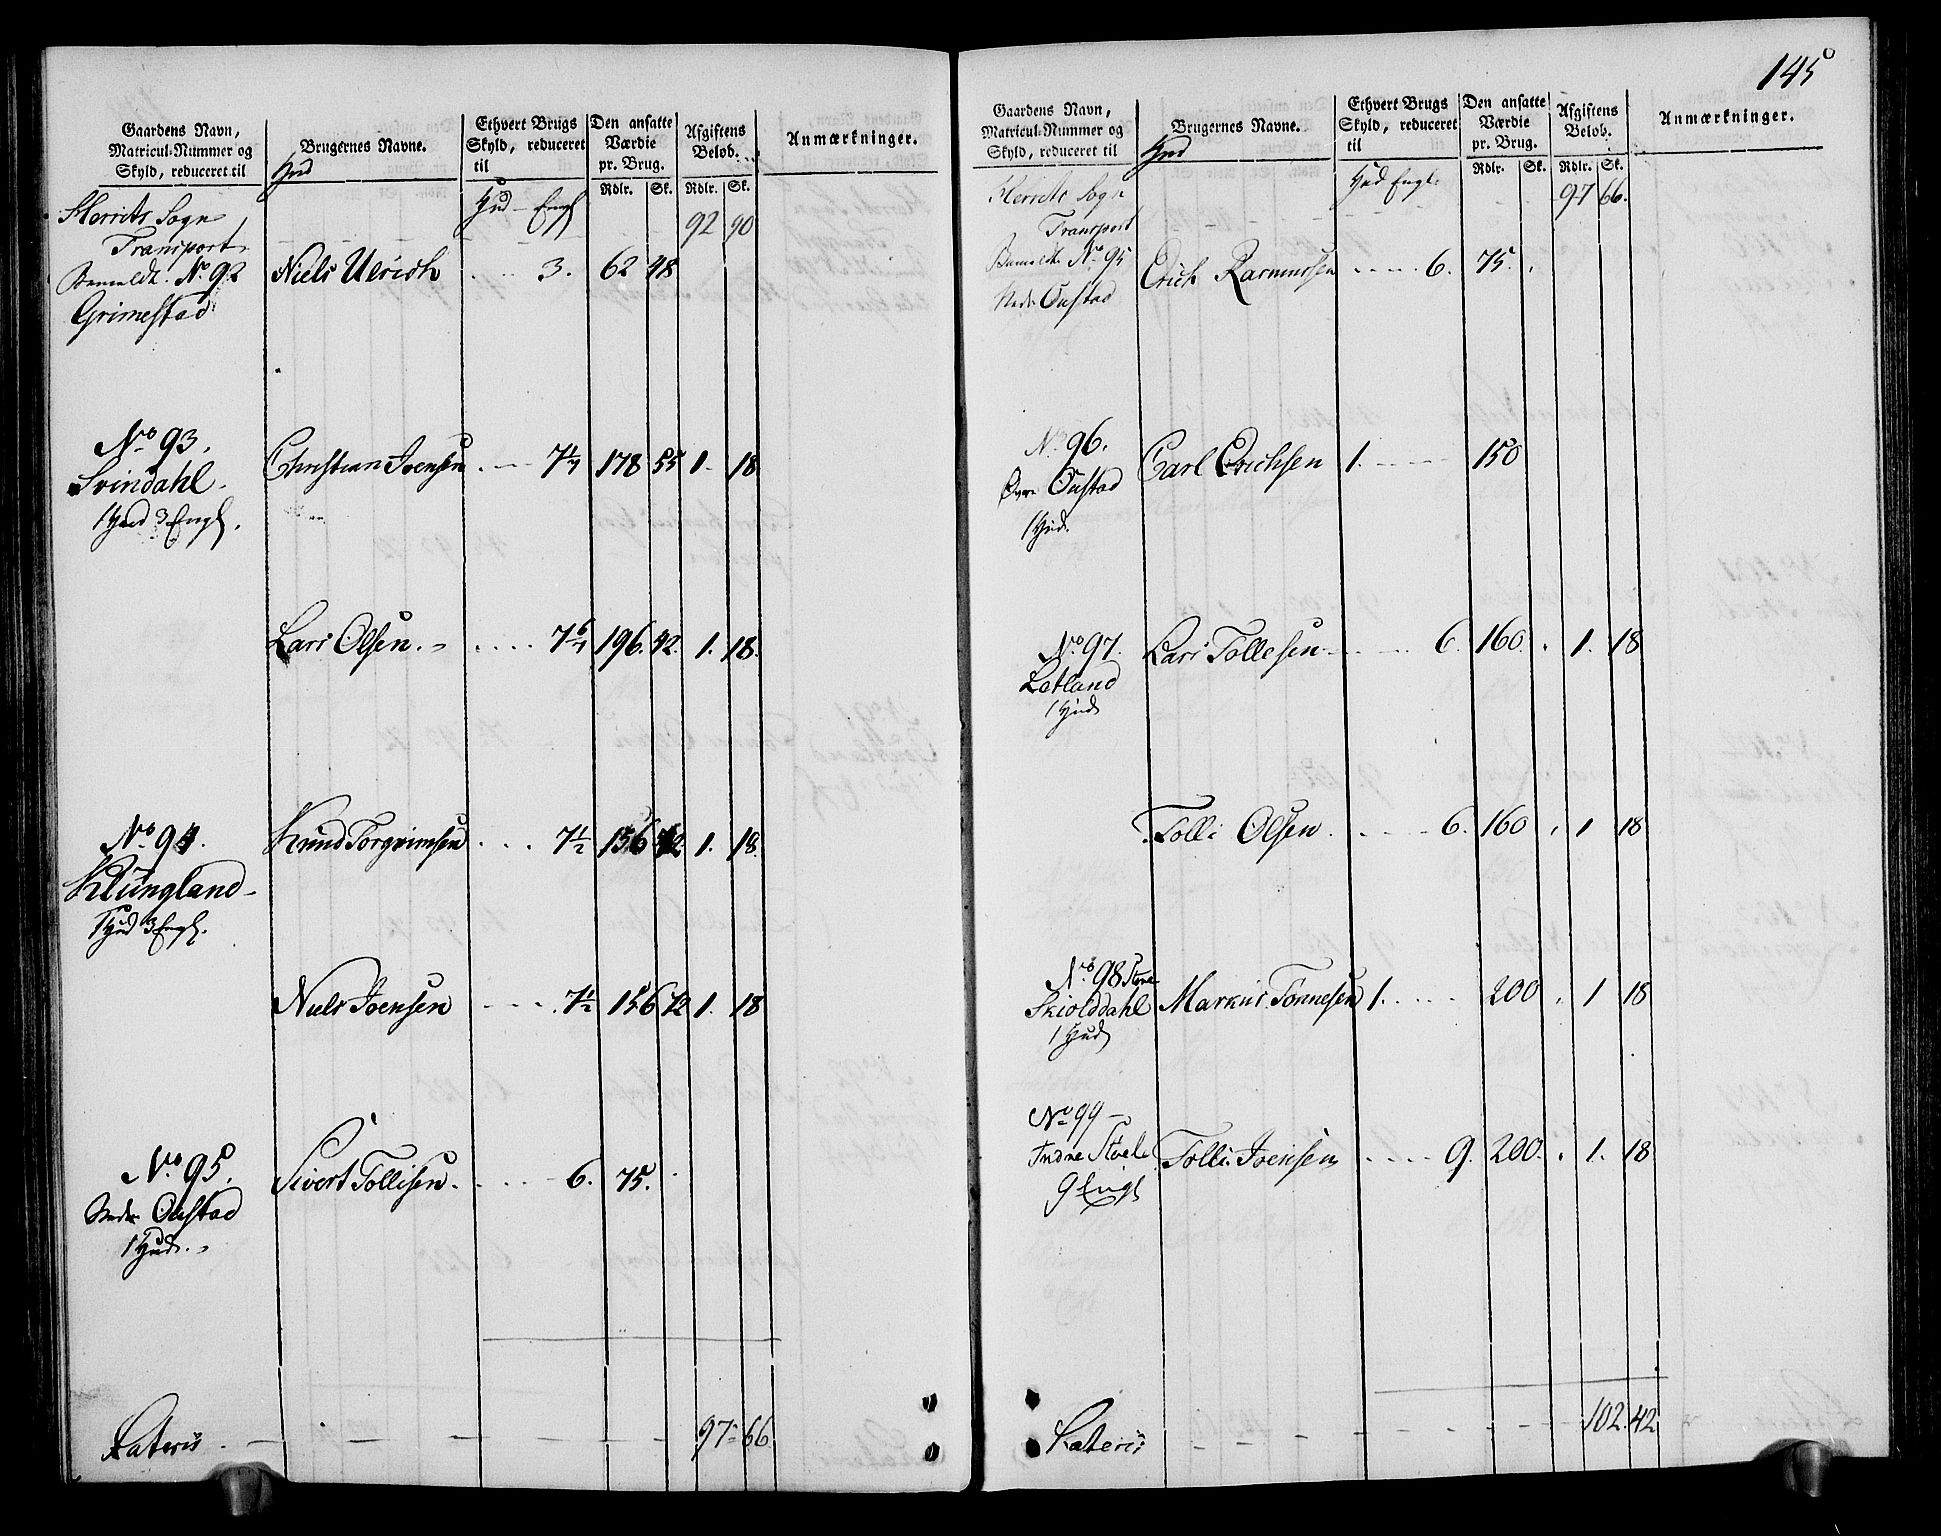 Gaardens Navn,
Matricul-Nummer og
Skyld, reduceret til
Hud
Brugernes Navne.
Ethvert Brugs
Skyld, reduceret
til
Hud - Engl
Den ansatte
Værdie
pr. Brug.
Rdlr. Sk.
Afgiftens
Beløb.
Rdlr. Sk.
Anmærkninger.
Herrits Sogn
Transport 92 90
No. 92 Niels Ulrich 3. 62 48
Grimestad
No 93. Christian Joensen 7 1/7 178 55 1. 18
Svindahl
1 Hud 3 Engl.
Lars Olsen. 7 6/7 196. 42. 1. 18.
No. 94. Knud Torgrimsen 7 1/2 156 42 1. 18.
Klungland
1 Hud 3 Engl.
Niels Joensen 7 1/2 156 42 1. 18
No. 95. Sivert Tollisen. 6. 75.
Nedre Oustad
1 Hud.
Lateris 97 66.
145
Gaardens Navn,
Matricul-Nummer og
Skyld, reduceret til
Hud
Brugernes Navne.
Ethvert Brugs
Skyld, reduceret
til
Hud Engl.
Den ansatte
Værdie
pr. Brug.
Rdlr. Sk.
Afgiftens
Beløb.
Rdlr. Sk.
Anmærkninger.
Herrits Sogn 97 66.
Transport
No. 95 Erich Rasmussen 6. 75.
Nedre Oustad
No. 96. Carl Erichsen 1. 150
Øvre Oustad
1 Hud.
No. 97. Lars Tollesen 6. 160. 1. 18
Letland
1 Hud
Tolli Olsen. 6. 160 1 18
No. 98 Store Markus Tønnesen 1. 200 1 18
Skiolddahl
1 Hud
No 99 Tolli Joensen 9. 200. 1. 18
Indre Støel
9 Engl
Lateris 102. 42.